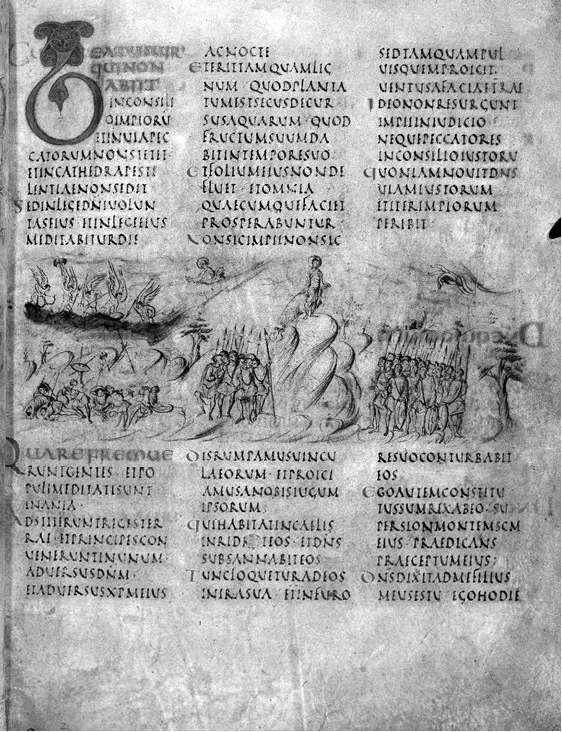 BEATUSUIR
QUINON
ABIIT
INCONSILI
OIMPIORU
ETINUIAPEC
CATORUMNONSTETIT
ETINCATHEDRAPESTI
LENTIAENONSEDIT
SEDINLEGEDNIUOLUN
TASEIUS ETINLEGEEIUS
MEDITABITURDIE
ACNOCTE
ETERITTAMQUAMLIG
NUM QUODPLANTA
TUMESTSECUSDECUR
SUSAQUARUM QUOD
FRUCTUMSUUMDA
BITINTEMPORESUO
ETFOLIUMEIUSNONDE
FLUET ETOMNIA
QUAECUMQUEFACIET
PROSPERABUNTUR
NONSICIMPIINONSIC
SEDTAMQUAMPUL
UISQUEMPROICIT
UENTUSAFACIAETRAE
IDEONONRESURGUNT
IMPIIINIUDICIO
NEQUEPECCATORES
INCONSILIOIUSTORU
QUONIAMNOUITDNS
UIAMIUSTORUM
ETITERIMPIORUM
PERIBIT
QUAREFREMUE
RUNTGENTES ETPO
PULIMEDITATISUNT
INANIA
ADSTITERUNTREGESTER
RAE ETPRINCIPESCON
UENERUNTINUNUM
ADUERSUSDNM
ETADUERSUSXPMEIUS
DISRUMPAMUSUINCU
LAEORUM ETPROICI
AMUSANOBISIUGUM
IPSORUM
QUIHABITATINCAELIS
INRIDEBITEOS ETDNS
SUBSANNABITEOS
TUNCLOQUETURADEOS
INIRASUA ETINFURO
RESUOCONTURBABIT
EOS
EGOAUTEMCONSTITU
TUSSUMREXABEO SU
PERSIONMONTEMSCM
EIUS PRAEDICANS
PRAECEPTUMEIUS
DNSDIXITADMEFILIUS
MEUSESTU EGOHODIE